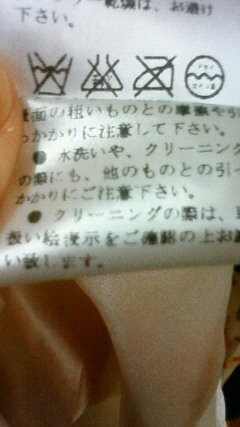 乾燥は、お避け
下さい。
ドライ
面の粗いものとの摩擦や引
っかかりに注意して下さい。
● 水洗いや、クリーニング
の際にも、他のものとの引
かかりにご注意下さい。
● クリーニングの際は、
扱い絵表示をご確認の上お
い致します。